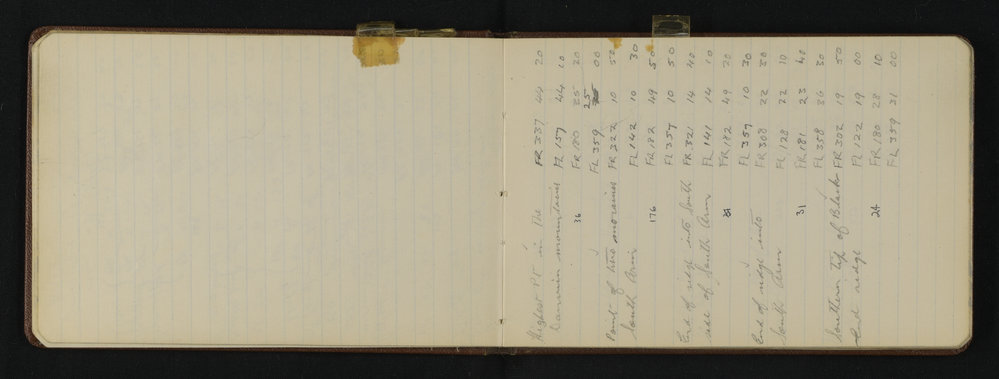 Highest PT in the FR 337 44 20
Darwin mountains FL 157 44 10
36 FR 180 25 20
FL 359 25 00
Point of two moraines FR 322 10 50
South Arm FL 142 10 30
176 FR 182 49 50
FL 357 10 50
End of ridge into South FR 321 14 40
side of South Arm FL 141 14 10
FR 182 49 20
FL 357 10 30
End of ridge into FR 308 22 30
South Arm FL 128 22 10
31 FR 181 23 40
FL 358 36 30
Southern tip of Black FR 302 19 50
End ridge FL 122 19 00
24 FR 180 28 10
FL 359 31 00